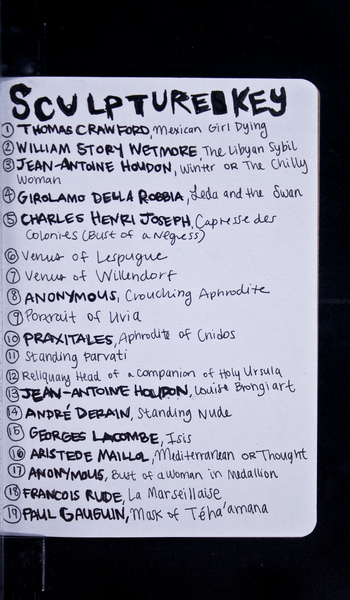 SCULPTURE KEY
① THOMAS CRAWFORD, Mexican Girl Dying
② WILLIAM STORY WETMORE, The Libyan Sybil
③ JEAN-ANTOINE HOUDON, Winter OR The Chilly
Woman
④ GIROLAMO DELLA ROBBIA, Leda and the Swan
⑤ CHARLES HENRI JOSEPH, Capresse des
Colonies (Bust of a Negress)
⑥ Venus of Lespugue
⑦ Venus of Willendorf
⑧ ANONYMOUS, Crouching Aphrodite
⑨ Portrait of Livia
⑩ PRAXITALES, Aphrodite of Cnidos
⑪ Standing Parvati
⑫ Reliquary Head of a companion of Holy Ursula
⑬ JEAN-ANTOINE HOUDON, Louise Brongiart
⑭ ANDRÉ DERAIN, Standing Nude
⑮ GEORGES LACOMBE, Isis
⑯ ARISTEDE MAILLOL, Mediterranean OR Thought
⑰ ANONYMOUS, Bust of a Woman in Medallion
⑱ FRANCOIS RUDE, La Marseillaise
⑲ PAUL GAUGUIN, Mask of Téha'amana